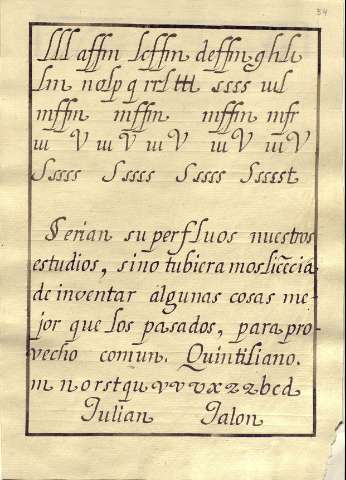 34
lll affm lcffm deffm ghh
lm nolp q rrl ttt ssss wl
mffm mffm mffm mfr
Sssss Sssss Sssss Sssesst
Serian superfluos nuestros
estudios, sino tubieramos licēcia
de inventar algunas cosas me-
jor que los pasados, para pro-
vecho comun. Quintiliano.
m n o r s t q u v v v x z z b c d
Julian Jalon